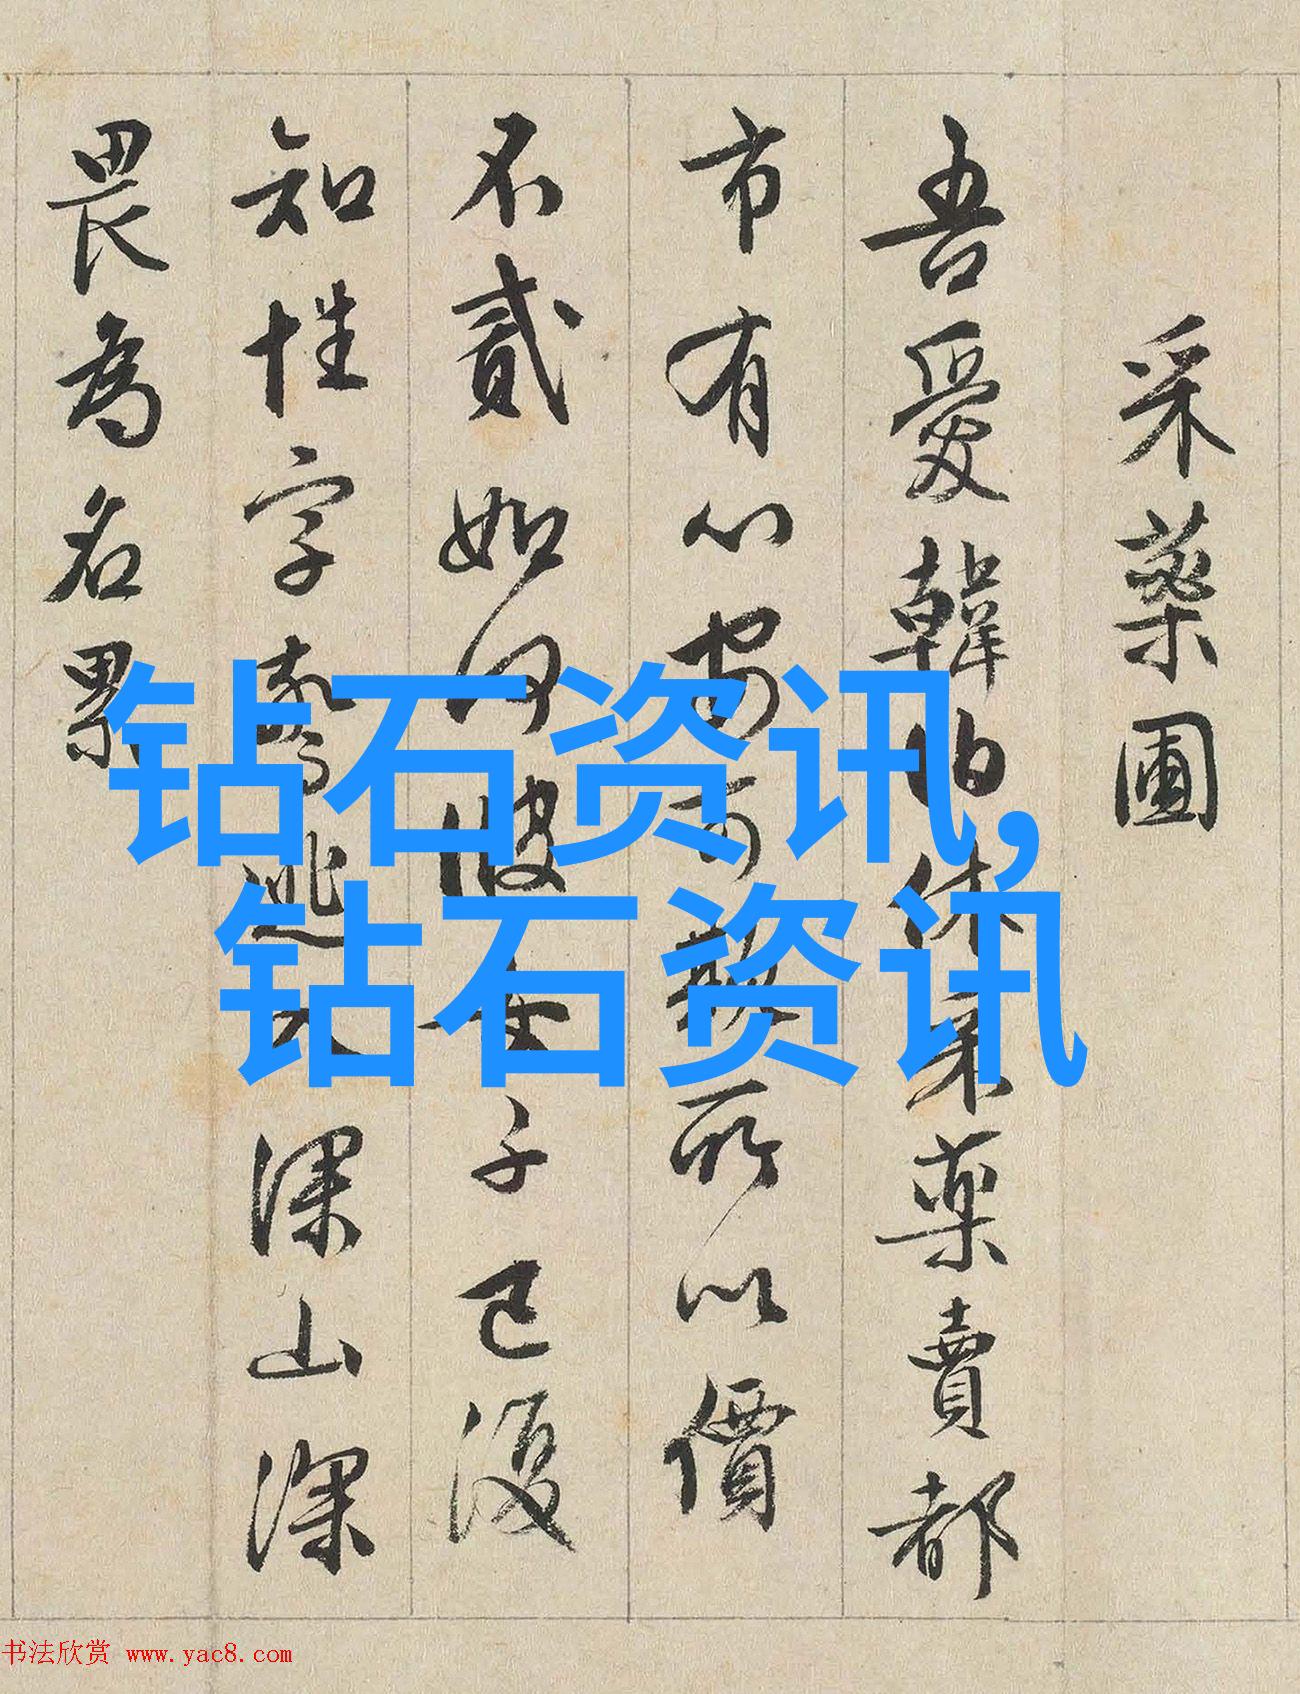 采藥圃
吾愛韓伯休采藥賣都
市有心寧可欺所以價
不貳如何彼女子已復
知性字驚逃深山深
畏為名累
钻石资讯,
钻石资讯
书法欣赏 www.yac8.com